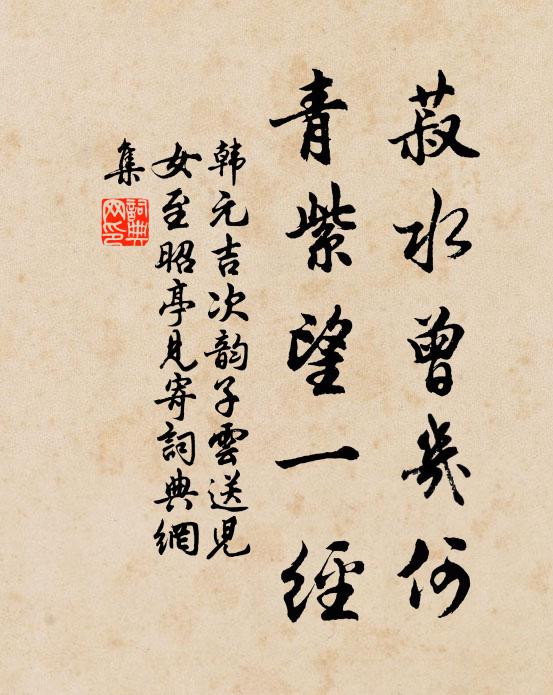 菽水曾幾何
青紫望一經
韩元吉次韵子雲送兒
女至昭亭見寄詞典網
集
詞典
网印